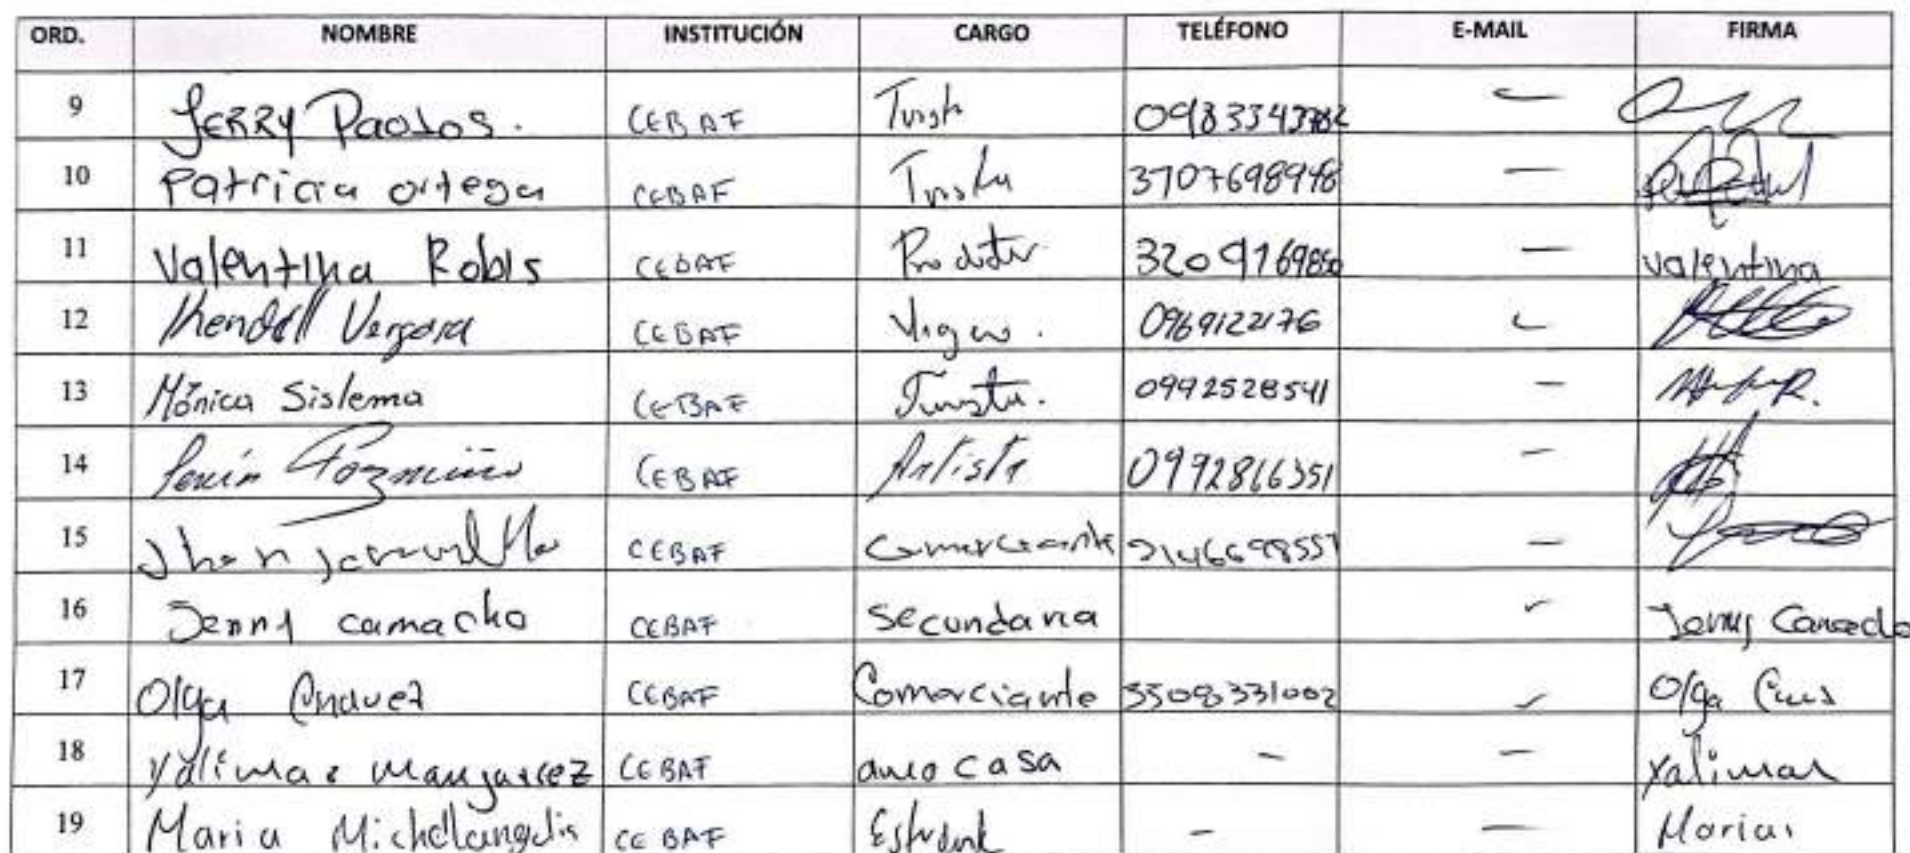 ORD. NOMBRE INSTITUCIÓN CARGO TELÉFONO E-MAIL FIRMA
9 JERRY PaoLos. CEBAF Turista —
10 Patricia ortega CEBAF Turista 3707698948 —
11 Valentina Robls CEBAF Productor 3209769850 — Valentina
12 Kendall Vergara CEBAF 0969122176
13 Mónica Sistema CEBAF Turista. 0992528541 —
14 CEBAF Artista 0992816351 —
15 Jhon Jaramillo CEBAF comerciante —
16 Jenny camacho CEBAF Secundaria Jenny
17 Olga Chavez CEBAF Comerciante 3308331002 Olga
18 Yalimar Manjarrez CEBAF ama casa — — Yalimar
19 Maria Michellangelis CEBAF — — Maria